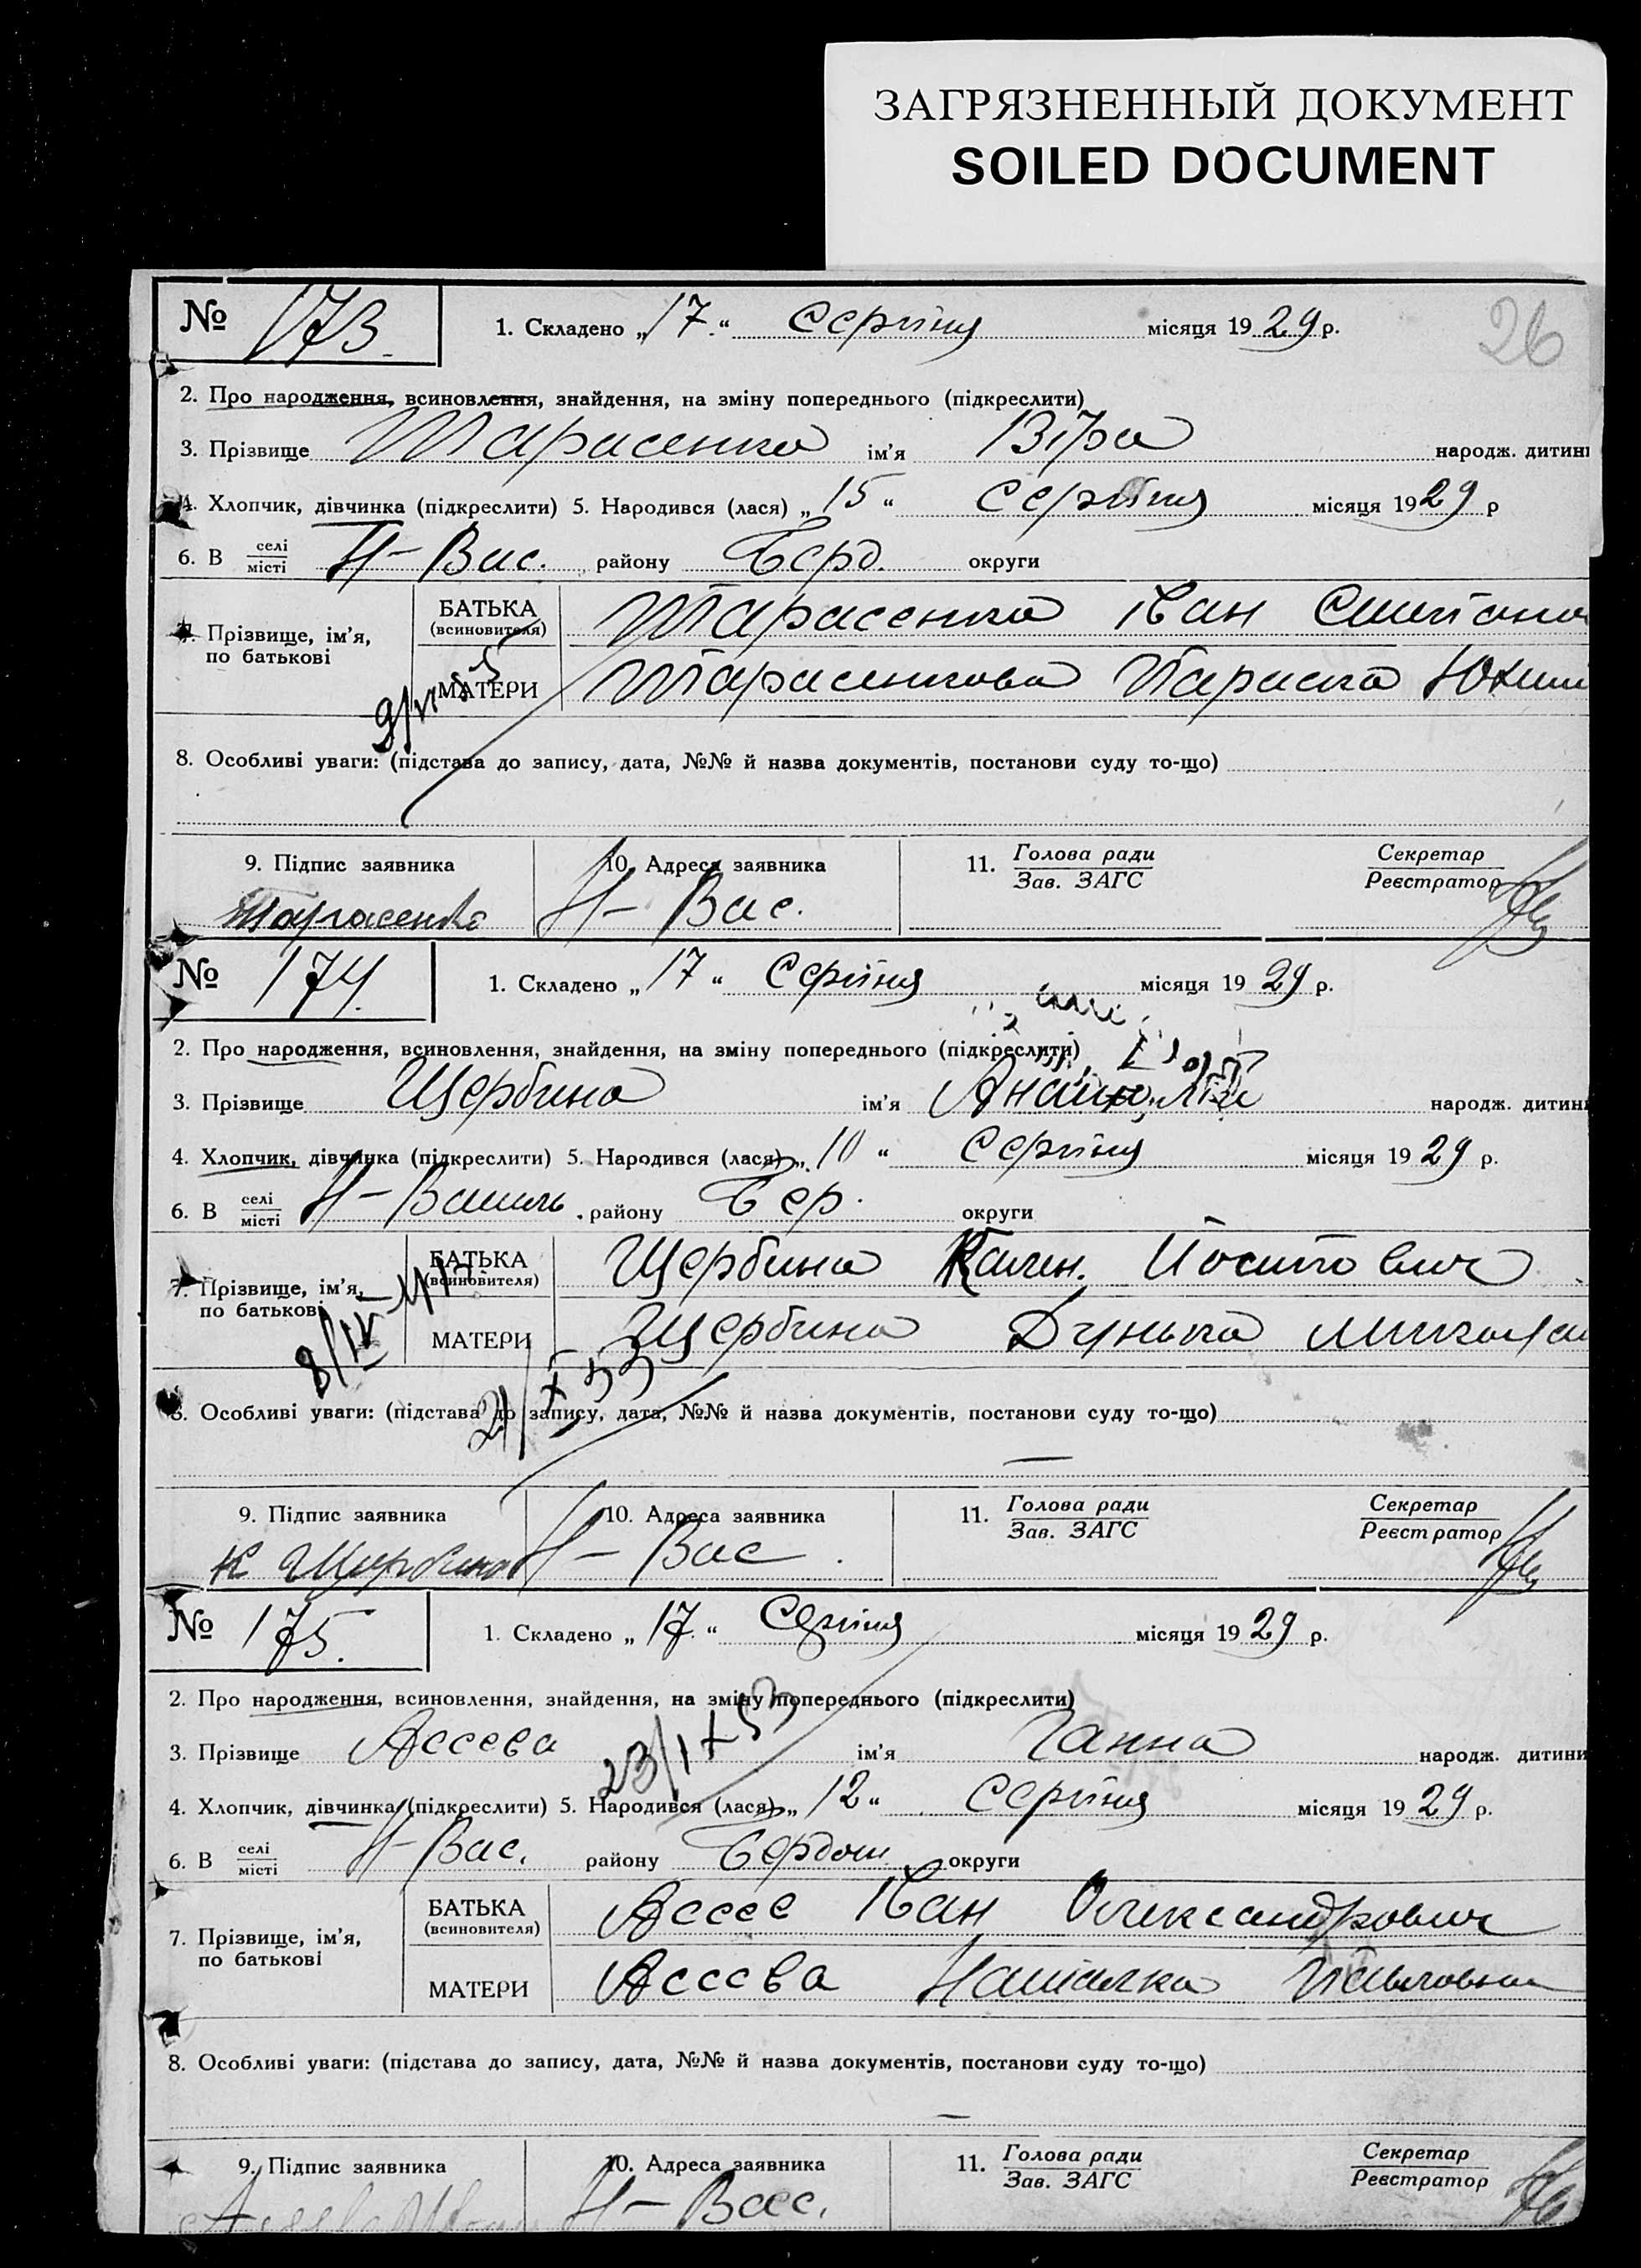 ЗАГРЯЗНЕННЫЙ ДОКУМЕНТ
SOILED DOCUMENT
26
№ 173. 1. Складено „17.“ Серпня місяця 1929 р.
2. Про народження, всиновлення, знайдення, на зміну попереднього (підкреслити)
3. Прізвище Тарасенко ім'я Віра народж. дитини
4. Хлопчик, дівчинка (підкреслити) 5. Народився (лася) „15“ Серпня місяця 1929 р
6. В селі/місті Н-Вас. району Берд. округи
7. Прізвище, ім'я, по батькові
БАТЬКА (всиновителя) Тарасенко Іван
МАТЕРИ Тарасенкова Параска
8. Особливі уваги: (підстава до запису, дата, №№ й назва документів, постанови суду то-що)
9. Підпис заявника 10. Адреса заявника 11. Голова ради/Зав. ЗАГС Секретар/Реєстратор
Тарасенко Н-Вас.
№ 174. 1. Складено „17“ Серпня місяця 1929 р.
2. Про народження, всиновлення, знайдення, на зміну попереднього (підкреслити)
3. Прізвище Щербина ім'я Анатолій народж. дитини
4. Хлопчик, дівчинка (підкреслити) 5. Народився (лася) „10“ Серпня місяця 1929 р.
6. В селі/місті Н-Васил. району Бер. округи
7. Прізвище, ім'я, по батькові
БАТЬКА (всиновителя) Щербина Кален. Йосипович
МАТЕРИ Щербина Дунька
8. Особливі уваги: (підстава до запису, дата, №№ й назва документів, постанови суду то-що)
9. Підпис заявника 10. Адреса заявника 11. Голова ради/Зав. ЗАГС Секретар/Реєстратор
К Щербина Н-Вас.
№ 175. 1. Складено „17.“ Серпня місяця 1929 р.
2. Про народження, всиновлення, знайдення, на зміну попереднього (підкреслити)
3. Прізвище Ассева ім'я Ганна народж. дитини
23/IX 53
4. Хлопчик, дівчинка (підкреслити) 5. Народився (лася) „12“ Серпня місяця 1929 р.
6. В селі/місті Н-Вас. району округи
7. Прізвище, ім'я, по батькові
БАТЬКА (всиновителя) Ассев Іван Олександрович
МАТЕРИ Ассева Наталка Павловна
8. Особливі уваги: (підстава до запису, дата, №№ й назва документів, постанови суду то-що)
9. Підпис заявника 10. Адреса заявника 11. Голова ради/Зав. ЗАГС Секретар/Реєстратор
Н-Вас.